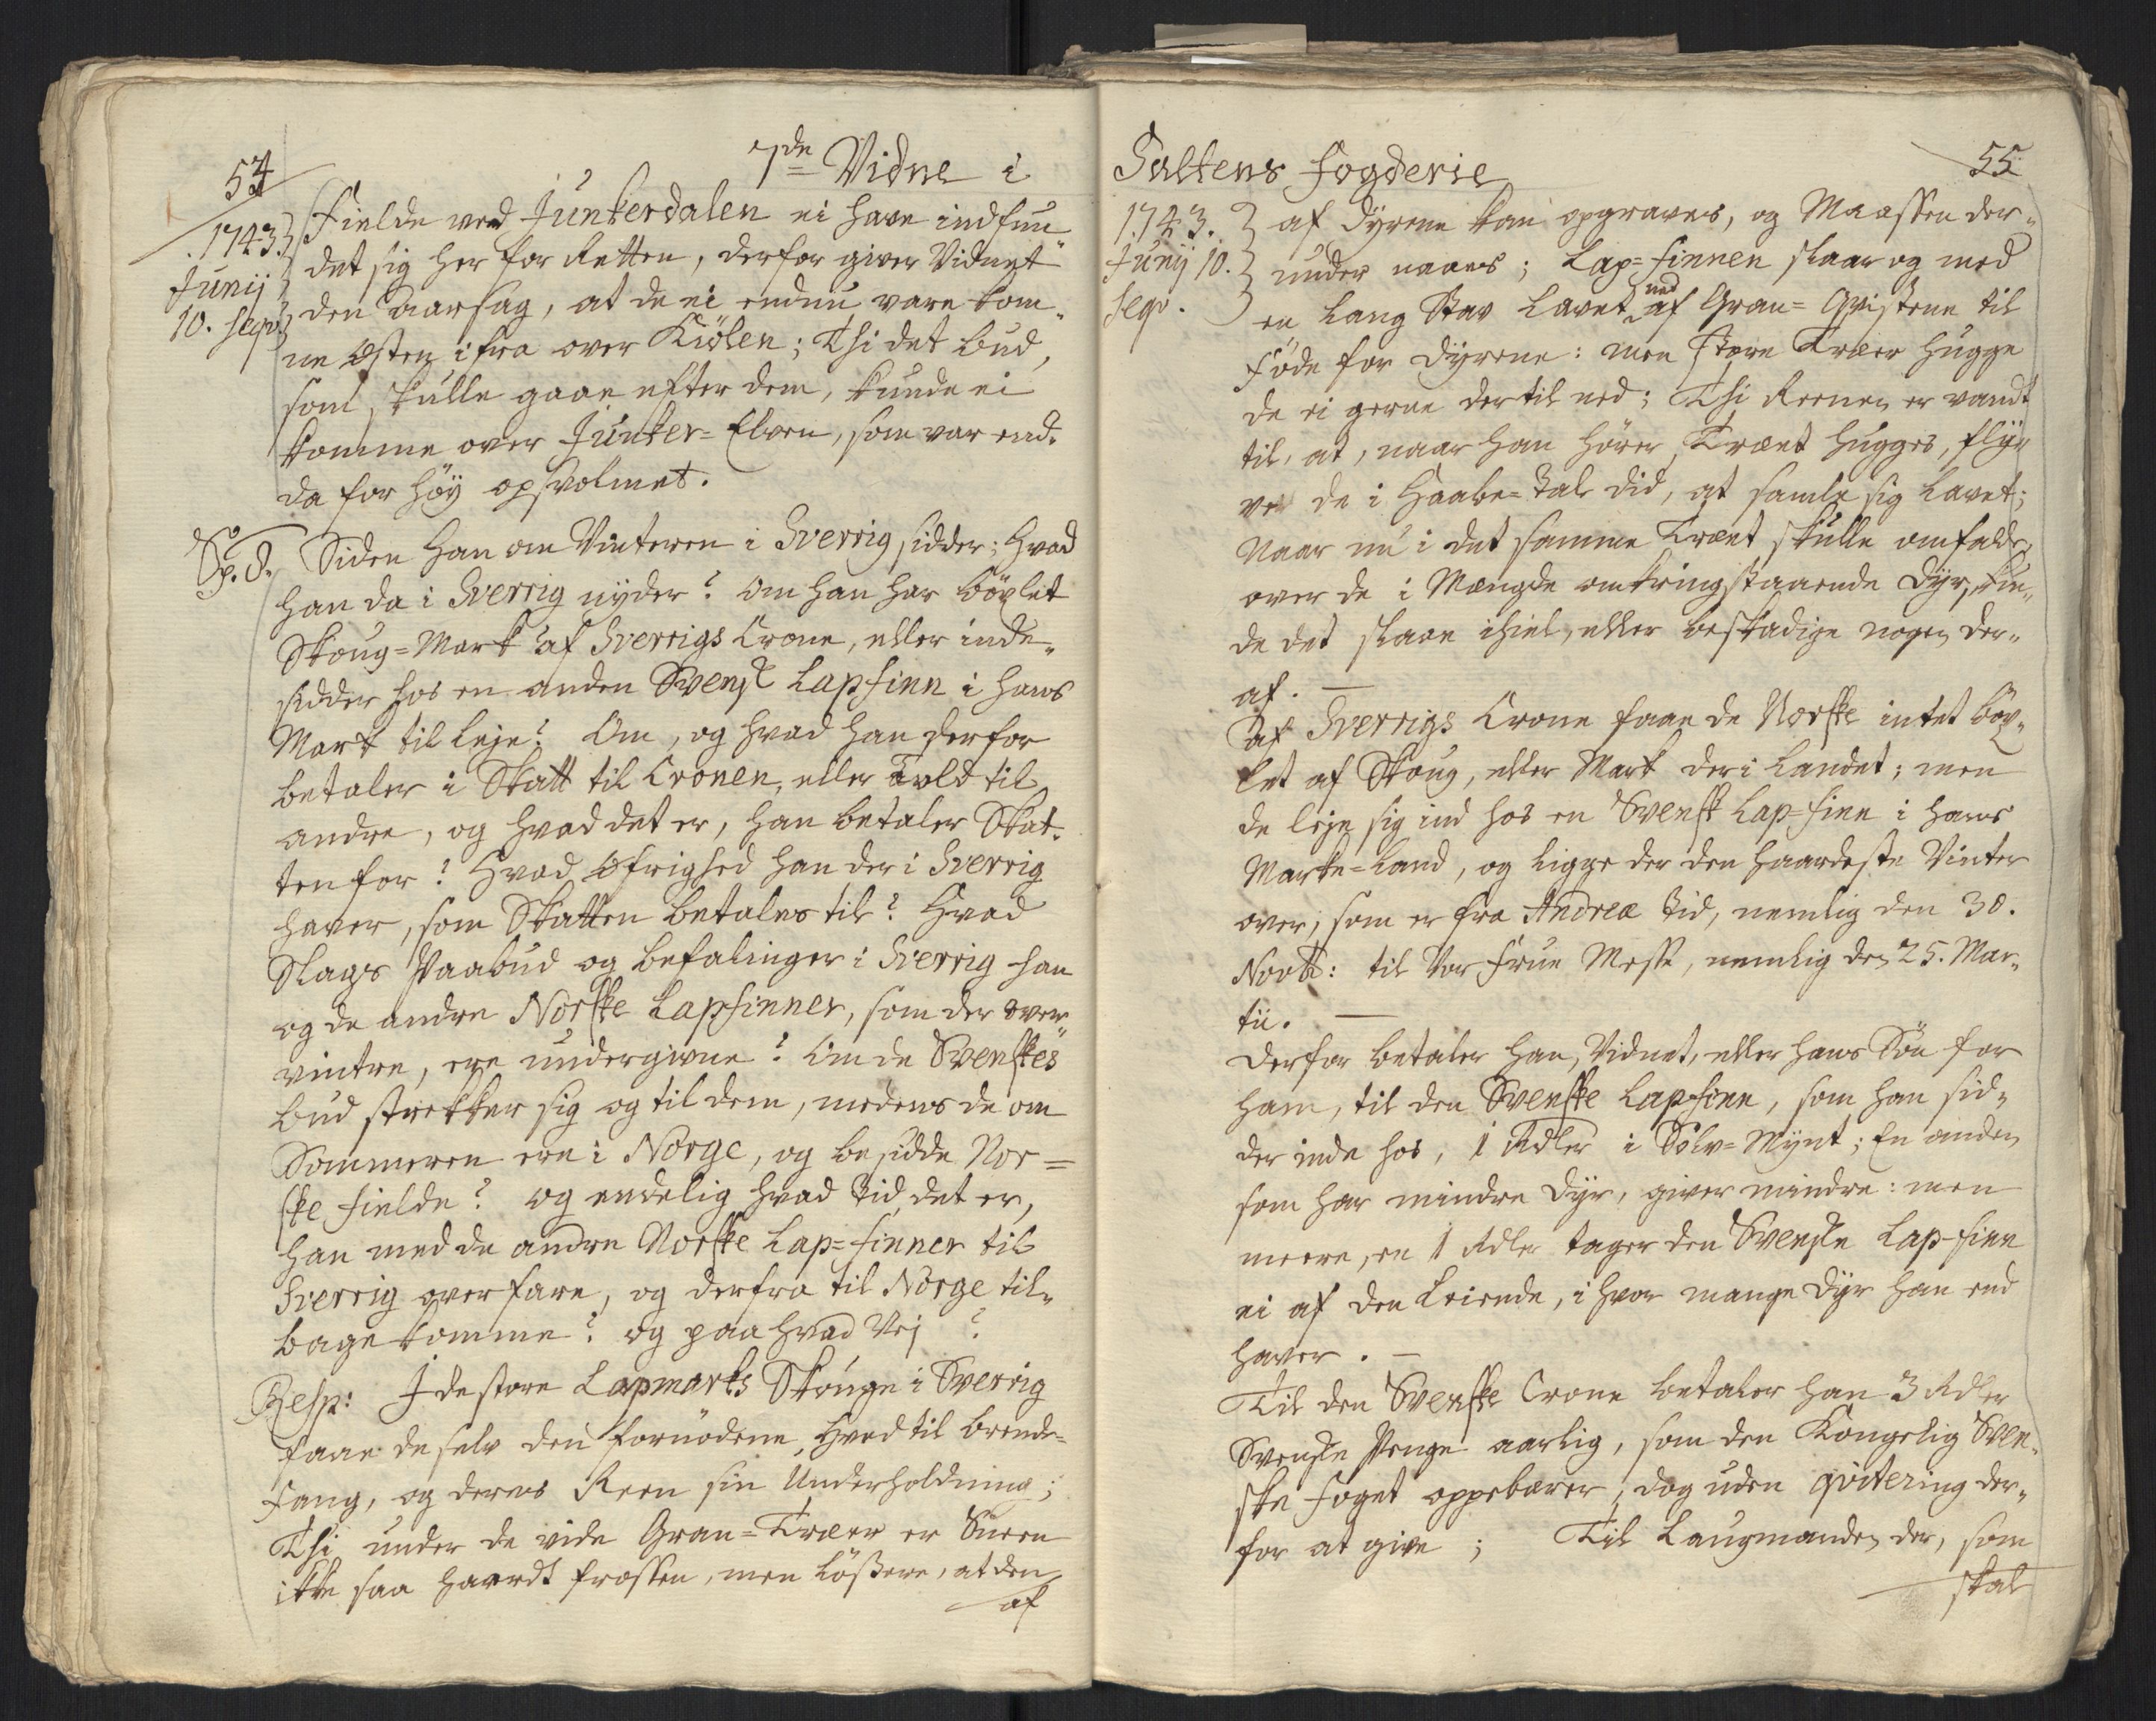 54
7de Vidne i
1743.
Junij
10. seqv.
Fielde ved Junkerdalen ei have indfun
det sig her for Retten, derfor giver Vidnet
den aarsag, at de ei endnu vare kom-
ne Østen ifra over Kiölen; Thi det bud,
som skulle gaae efter dem, kunde ei
komme over Junker-Elven, som var end-
da for höy opsvolmet.
Sp. 8. Siden han om Vinteren i Sverrig sidder; Hvad
han da i Sverrig nyder? Om han har böxlet
Skoug-Mark af Sverrigs Crone, eller inde-
sidder hos en anden Svensk Lapfinn i hans
Mark til leje? Om, og hvad han derfor
betaler i Skatt til Cronen, eller Told til
andre, og hvad det er, han betaler Skat-
ten for? Hvad Øfrighed han der i Sverrig
haver, som Skatten betales til? Hvad
Slags Paabud og befalinger i Sverrig han
og de andre Norske Lapfinner, som der over
vintre, ere undergivne? Om de Svenskes
bud strekker sig og til dem, medens de om
Sommeren ere i Norge, og besidde Nor-
ske Fielde? og endelig hvad Tid det er,
han med de andre Norske Lap-Finner til
Sverrig overfare, og derfra til Norge til-
bagekomme? og paa hvad Vej?
Resp: I de store Lapmarks Skouge i Sverrig
faae de selv den fornödene Hved til brende-
fang, og deres Reen sin Underholdning;
Thi under de vide Gran-Træer er Sneen
ikke saa haardt frossen, men lößere, at den
af
Saltens Fogderie
55
1743.
Junij 10.
seqv.
af Dyrene kan opgraves, og Maassen der-
under naaes; Lap-Finnen slaar og med
en lang Stav Lavet ned af Gran-Qvistene til
Föde for Dyrene: men store Træer hugge
de ei gerne dertil ned; Thi Reenen er vandt
til, at, naar han hörer Træet hugges, flyr
ve de i Haabe-Tal did, at samle sig Lavet;
Naar nu i det samme Træet skulle omfalde
over de i Mængde omkringstaaende Dyr, kun-
de det slaae ihiel, eller beskadige nogen der-
af.
Af Sverrigs Crone faae de Norske intet böx-
let af Skoug, eller Mark der i Landet; men
de leje sig ind hos en Svensk Lap-Finn i hans
Marke-Land, og ligge der den haardeste Vinter
over, som er fra Andreæ Tid, nemlig den 30.
Novb: til Vor Frue Messe, nemlig den 25. Mar-
tii.
Derfor betaler han, Vidnet, eller hans Sön for
ham, til den Svenske Lapfinn, som han sid-
der inde hos, 1 Rdler i Sölv-Mynt; En anden
som har mindre Dyr, giver mindre: men
meere, en 1 Rdler tager den Svenske Lap-Finn
ei af den Leiende, i hvor mange Dyr han end
haver.
Til den Svenske Crone betaler han 3 Rdler
Svenske Penge aarlig, som den Kongelig Sven-
ske Foget oppebærer, dog uden qvitering der-
for at give; Til Laugmanden der, som
skal